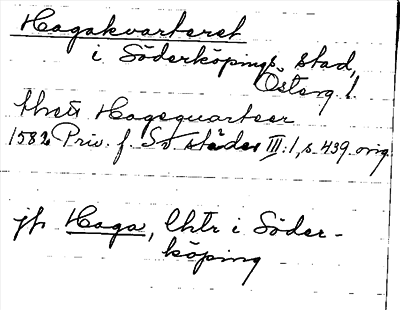 Hagakvarteret
i Söderköpings stad,
Österg. l.
Hage quarteer
1582 Priv. f. Sv. städer III:1, s. 439. orig.
jfr Haga, lhtr i Söder-
köping